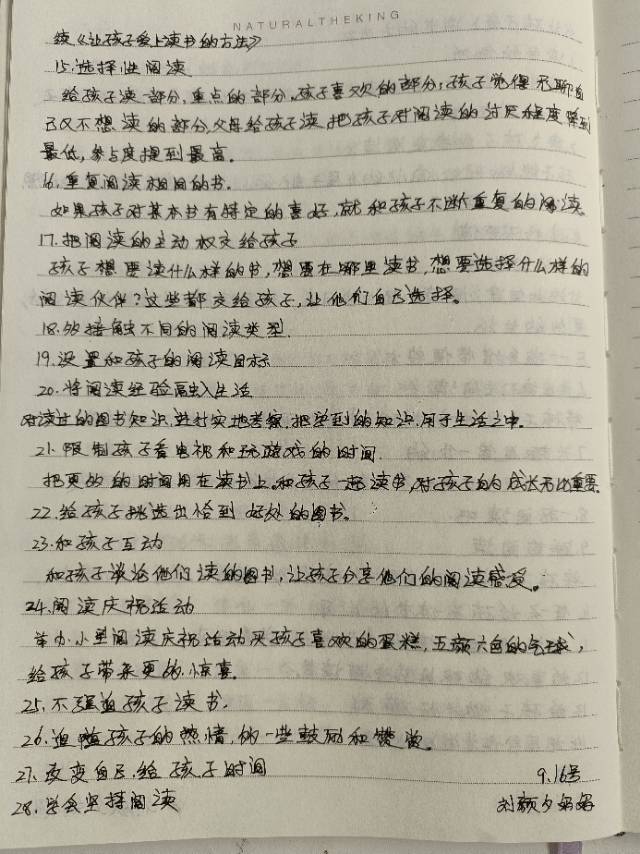 NATURALTHEKING
续《让孩子爱上读书的方法》
15.选择性阅读
给孩子读一部分,重点的部分,孩子喜欢的部分;孩子觉得无聊自
己又不想读的部分,父母给孩子读,把孩子对阅读的讨厌程度降到
最低,参与度提到最高。
16.重复阅读相同的书.
如果孩子对某本书有特定的喜好,就和孩子不断重复的阅读.
17.把阅读的主动权交给孩子
孩子想要读什么样的书,想要在哪里读书,想要选择什么样的
阅读伙伴?这些都交给孩子,让他们自己选择。
18.多接触不同的阅读类型.
19.设置和孩子的阅读目标
20.将阅读经验融入生活
对读过的图书知识,进行实地考察,把学到的知识,用于生活之中.
21.限制孩子看电视和玩游戏的时间.
把更多的时间用在读书上,和孩子一起读书,对孩子的成长无比重要.
22.给孩子挑选出恰到好处的图书。
23.和孩子互动
和孩子谈论他们读的图书,让孩子分享他们的阅读感受。
24.阅读庆祝活动
举办小型阅读庆祝活动买孩子喜欢的蛋糕,五颜六色的气球,
给孩子带来更多惊喜.
25.不强迫孩子读书.
26.追随孩子的热情,多一些鼓励和赞赏。
27.改变自己,给孩子时间
9.16号
28.学会坚持阅读
刘颖夕妈妈